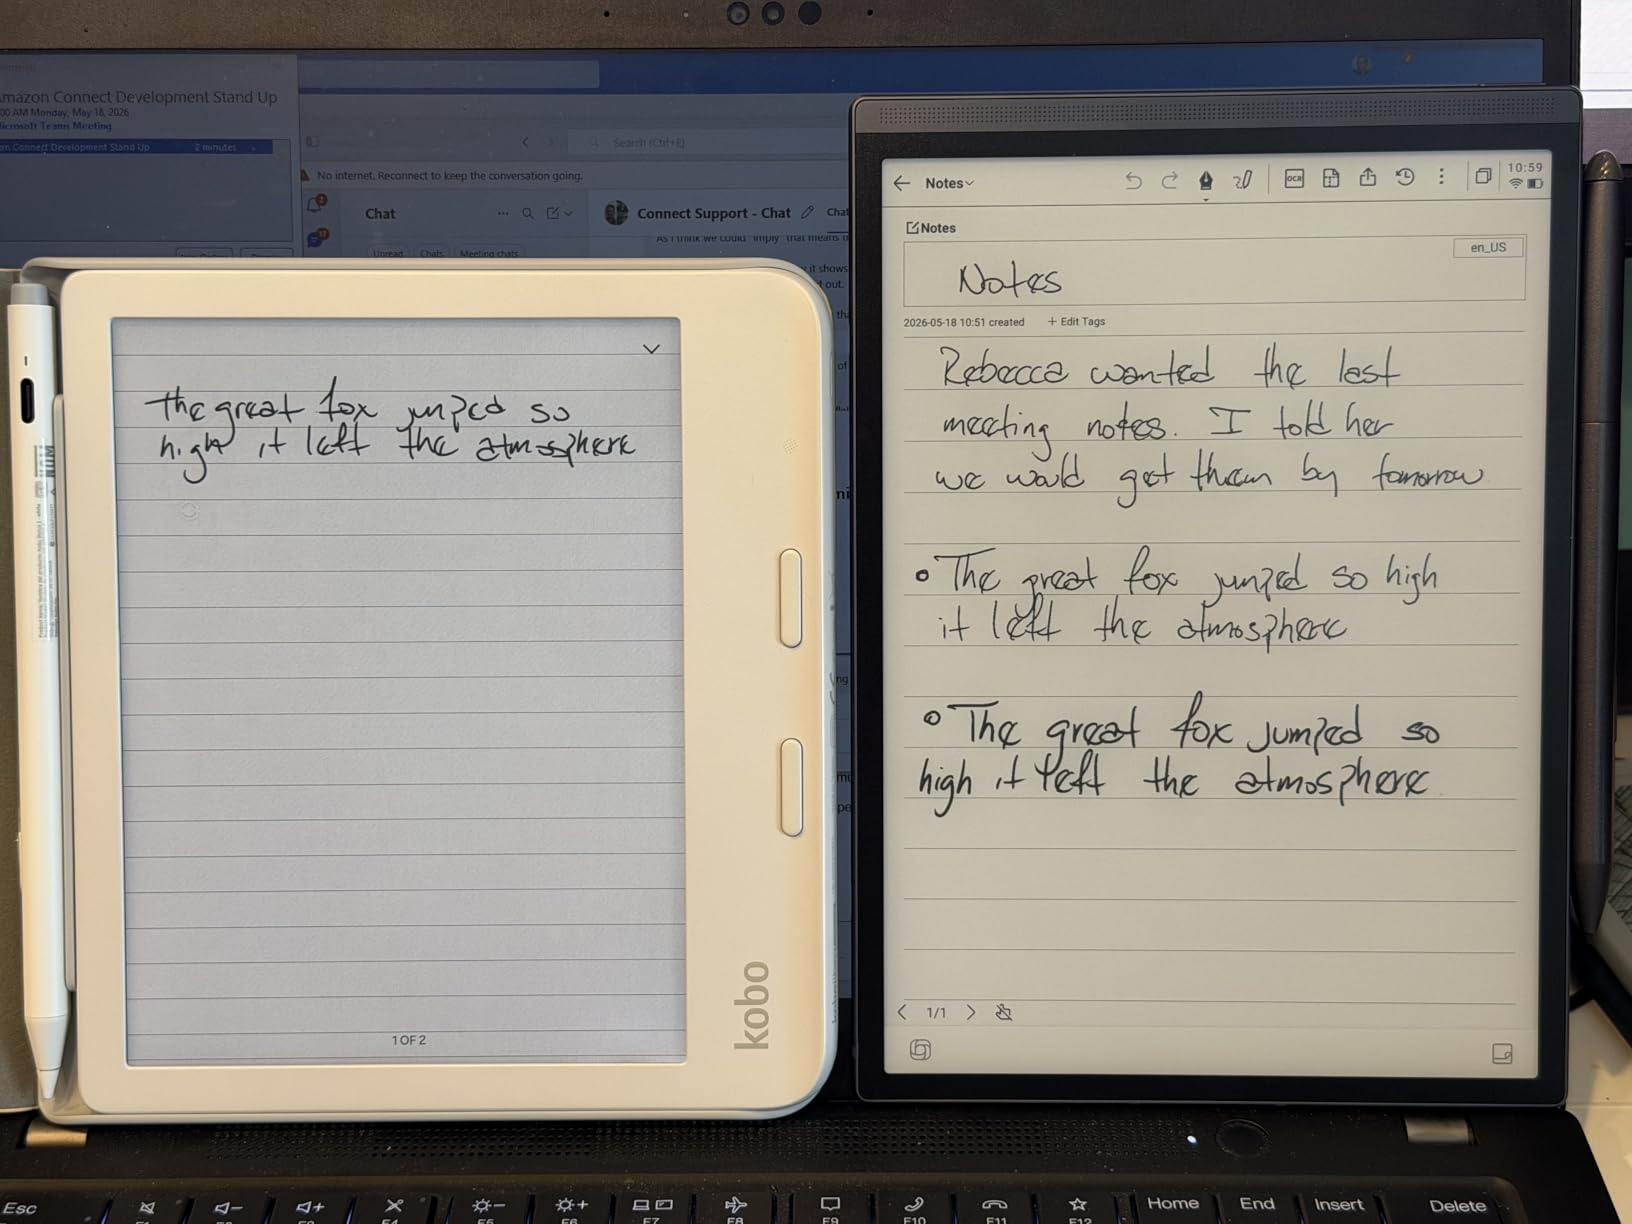 mazon Connect Development Stand Up
00 AM Monday, May 18, 2026
Microsoft Teams Meeting
on Connect Development Stand Up 2 minutes
Search (Ctrl+E)
No internet, Reconnect to keep the conversation going.
Chat
Connect Support - Chat
Chat
As I think we could "imply" that means
Unread Chats Meeting chats
it shows
out.
the great fox jumped so
high it left the atmosphere
1 OF 2
kobo
Notes
OCR
10:59
Notes
en_US
Notes
2026-05-18 10:51 created + Edit Tags
Rebecca wanted the last
meeting notes. I told her
we would get them by tomorrow
• The great fox jumped so high
it left the atmosphere
• The great fox jumped so
high it left the atmosphere
1/1
Esc
F1 F2 F3 F4 F5 F6 F7 F8 F9 F10 F11 F12
Home End Insert Delete